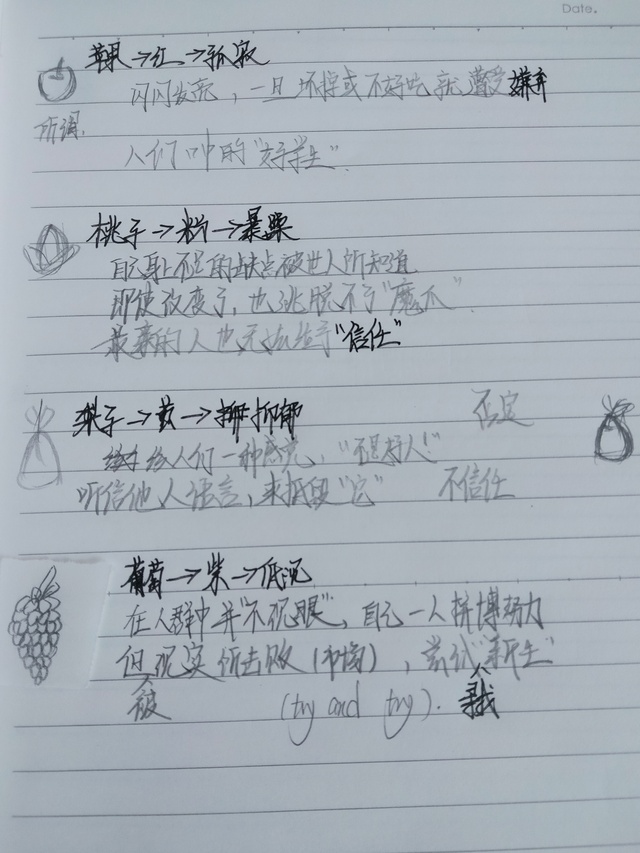 Date.
苹果→红→孤寂
闪闪发亮，一旦坏掉或不好吃就遭受嫌弃
所谓.
人们口中的"好学生".
桃子→粉→暴躁
自己身上不足的缺点被世人所知道
即使改变了,也逃脱不了"魔爪".
最亲的人也无法给予"信任"
梨子→黄→抑郁
否定
给人们一种感觉，"不是好人!"
听信他人谣言,来抵毁"它"
不信任
葡萄→紫→低沉
在人群中并"不玩眼",自己一人拼博努力
但被现实所击败(市场),尝试"新生"
(try and try). 寻找